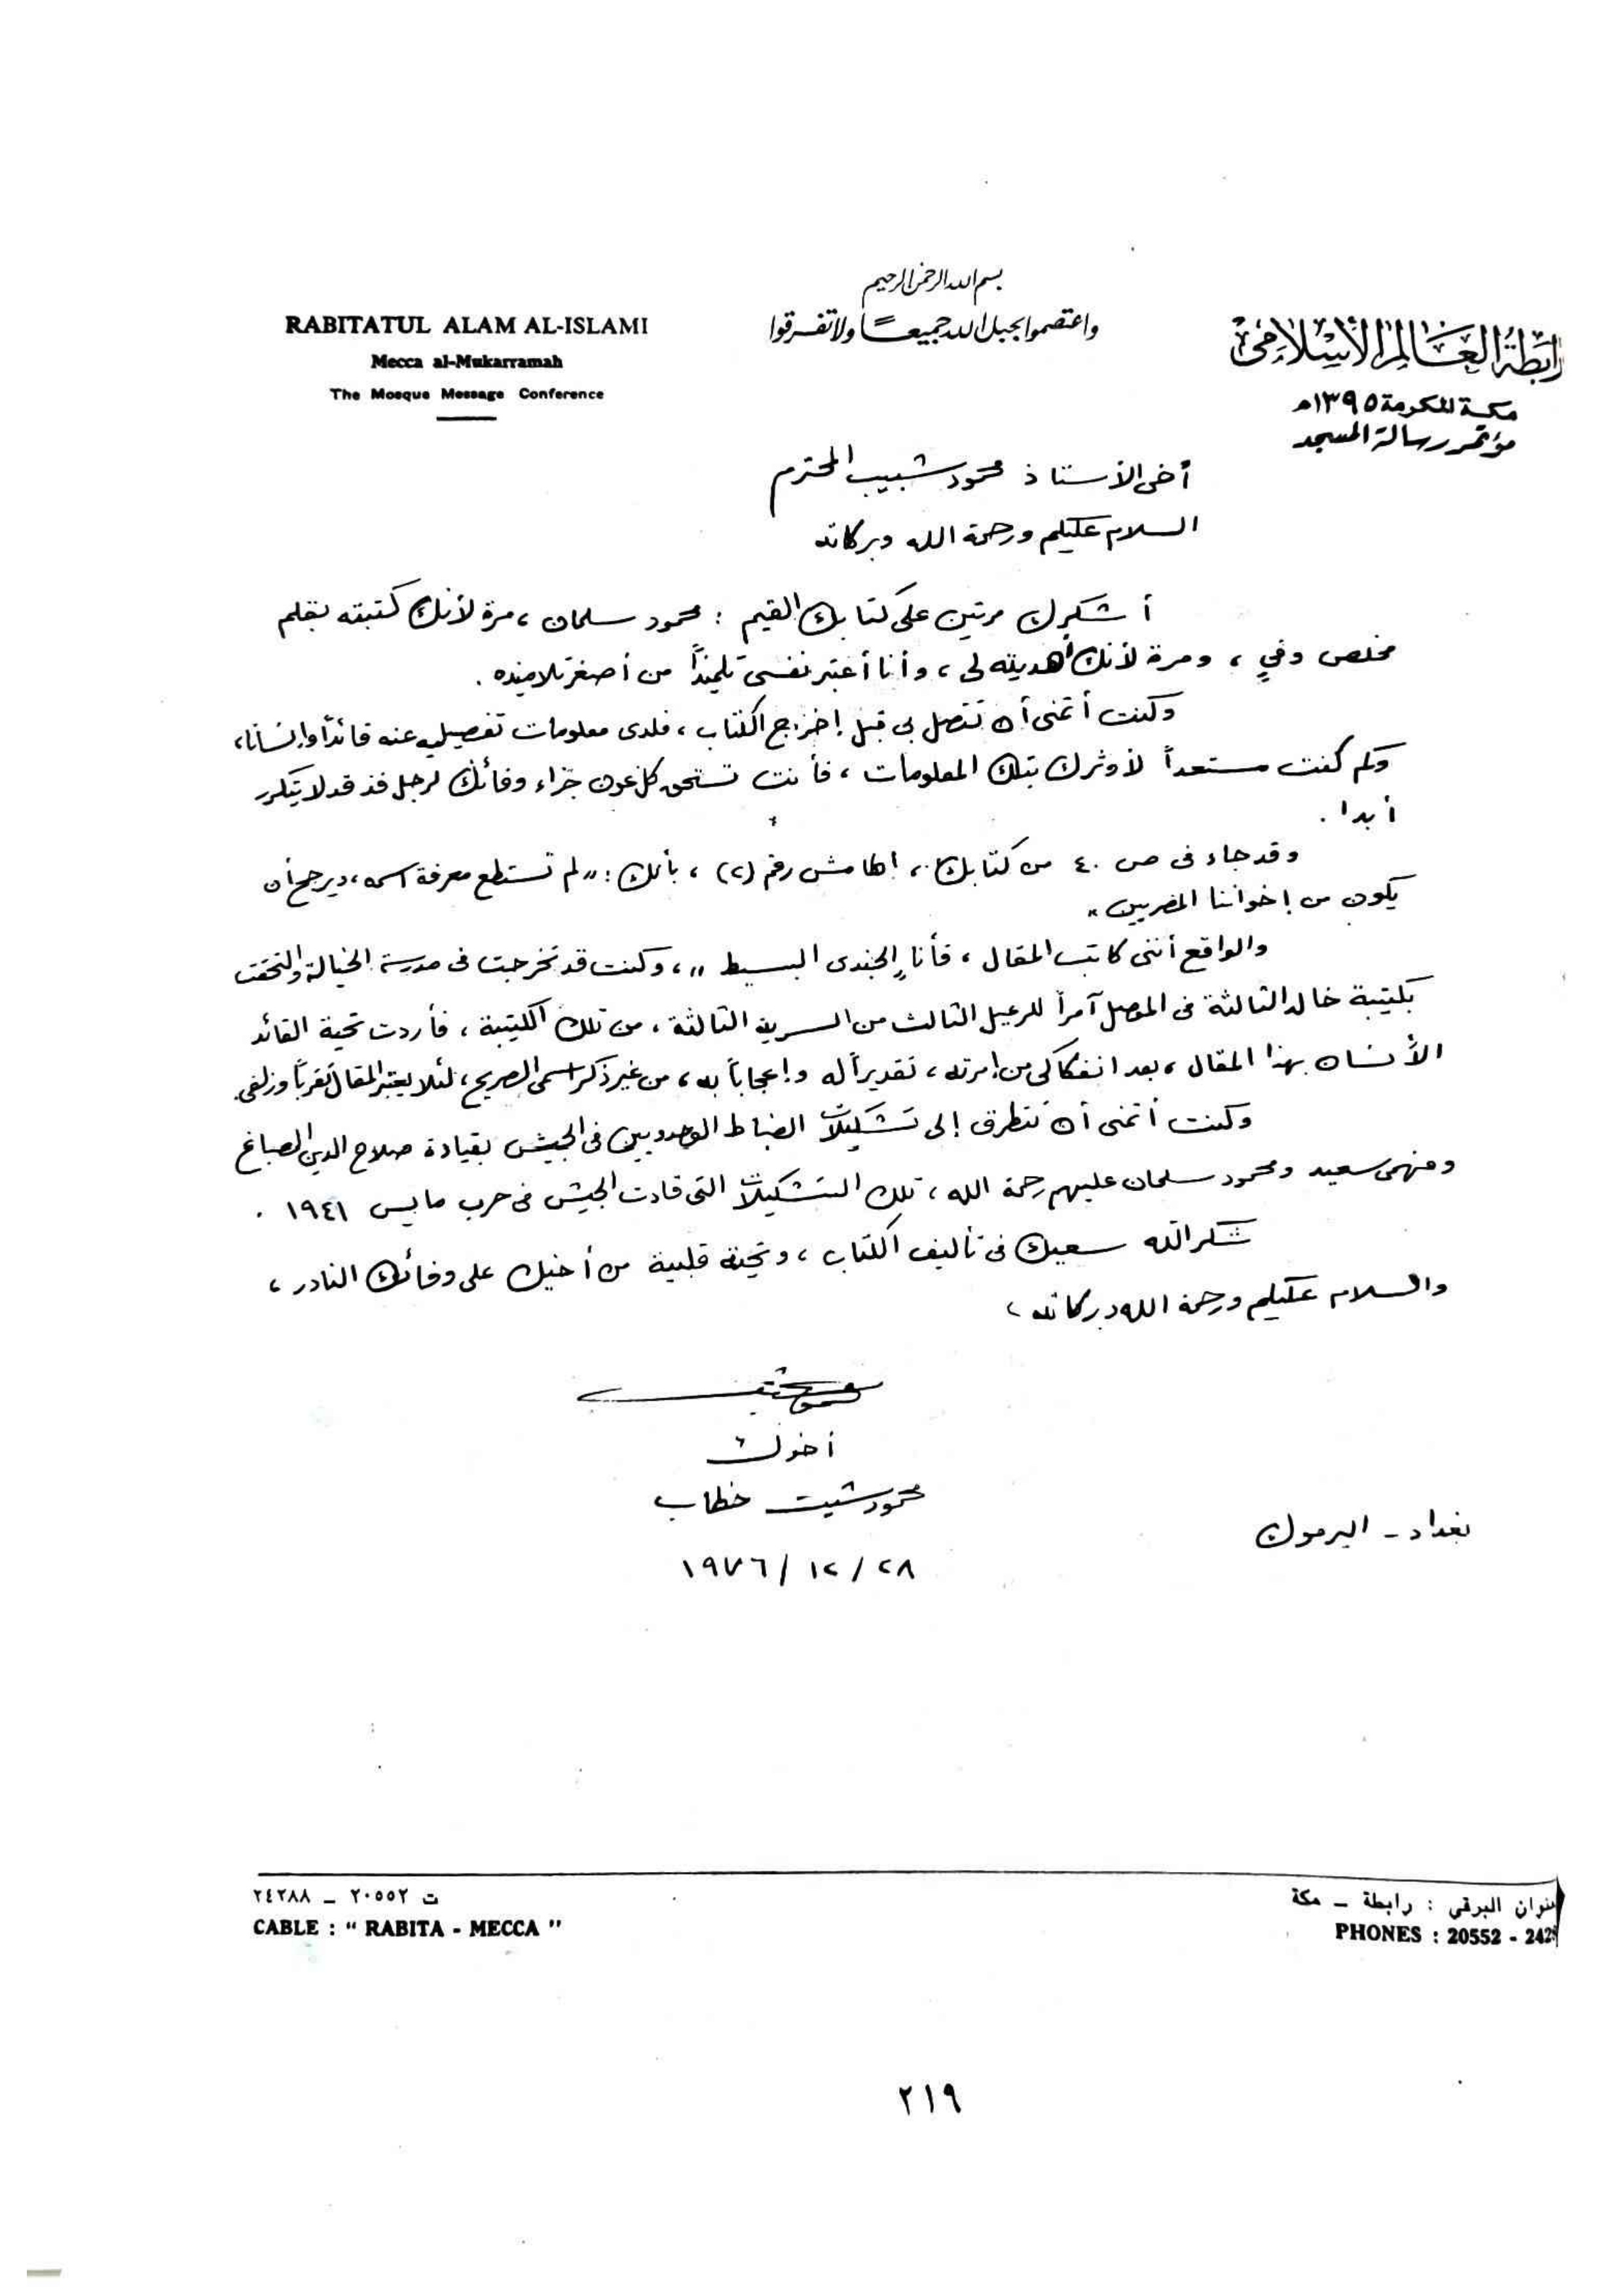 بسم الله الرحمن الرحيم
واعتصموا بحبل الله جميعًا ولا تفرقوا
رابطة العالم الإسلامي
مكة المكرمة ١٣٩٥هـ
مؤتمر رسالة المسجد
RABITATUL ALAM AL-ISLAMI
Mecca al-Mukarramah
The Mosque Message Conference
أخي الأستاذ محمود شبيب المحترم
السلام عليكم ورحمة الله وبركاته
أشكرك مرتين على كتابك القيم : محمود سلمان ، مرة لأنك كتبته بقلم
مخلص وفيٍ ، ومرة لأنك أهديته لي ، وأنا أعتبر نفسي تلميذاً من أصغر تلاميذه .
وكنت أتمنى أن تتصل بي قبل إخراج الكتاب ، فلدي معلومات تفصيلية عنه قائداً وإنسانا ،
وكم كنت مستعداً لأوثرك بتلك المعلومات ، فأنت تستحق كل عون جزاء وفائك لرجل فذ قد لا يتكرر
أبدا .
وقد جاء في ص ٤٠ من كتابك ، الهامش رقم (٢) ، بأنك : „ لم تستطع معرفة اسمه ، ويرجح أن
يكون من إخواننا المصريين "
والواقع أنني كاتب المقال ، فأنا „ الجندي البسيط „ ، وكنت قد تخرجت في مدرسة الخيالة والتحقت
بكتيبة خالد الثالثة في الموصل آمراً للرعيل الثالث من السرية الثالثة ، من تلك الكتيبة ، فأردت تحية القائد
الأنسان بهذا المقال ، بعد انفكاكي من إمرته ، تقديراً له وإعجاباً به ، من غير ذكر اسمي الصريح ، لئلا يعتبر المقال تقرباً وزلفى .
وكنت أتمنى أن تتطرق إلى تشكيلات الضباط الوحدويين في الجيش بقيادة صلاح الدين الصباغ
وفهمي سعيد ومحمود سلمان عليهم رحمة الله ، تلك التشكيلات التي قادت الجيش في حرب مايس ١٩٤١ .
شكر الله سعيك في تأليف الكتاب ، وتحية قلبية من أخيك على وفائك النادر ،
والسلام عليكم ورحمة الله وبركاته ،
أخوك
محمود شيت خطاب
٢٨ / ١٢ / ١٩٧٦
بغداد - اليرموك
ت ٢٠٥٥٢ – ٢٤٢٨٨
CABLE : “ RABITA - MECCA ”
عنوان البرقي : رابطة – مكة
PHONES : 20552 - 242
٢١٩